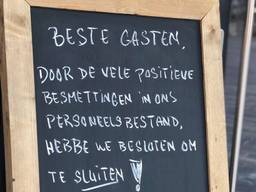 BESTE GASTEN,
DOOR DE VELE POSITIEVE
BESMETTINGEN IN ONS
PERSONEELSBESTAND,
HEBBE WE BESLOTEN OM
TE SLUITEN!